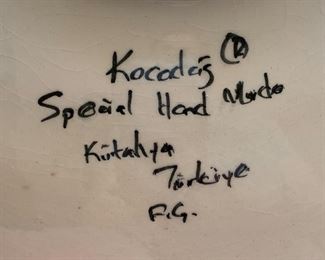 Kocadaş ®
Special Hand Made
Kütahya
Türkiye
F.G.